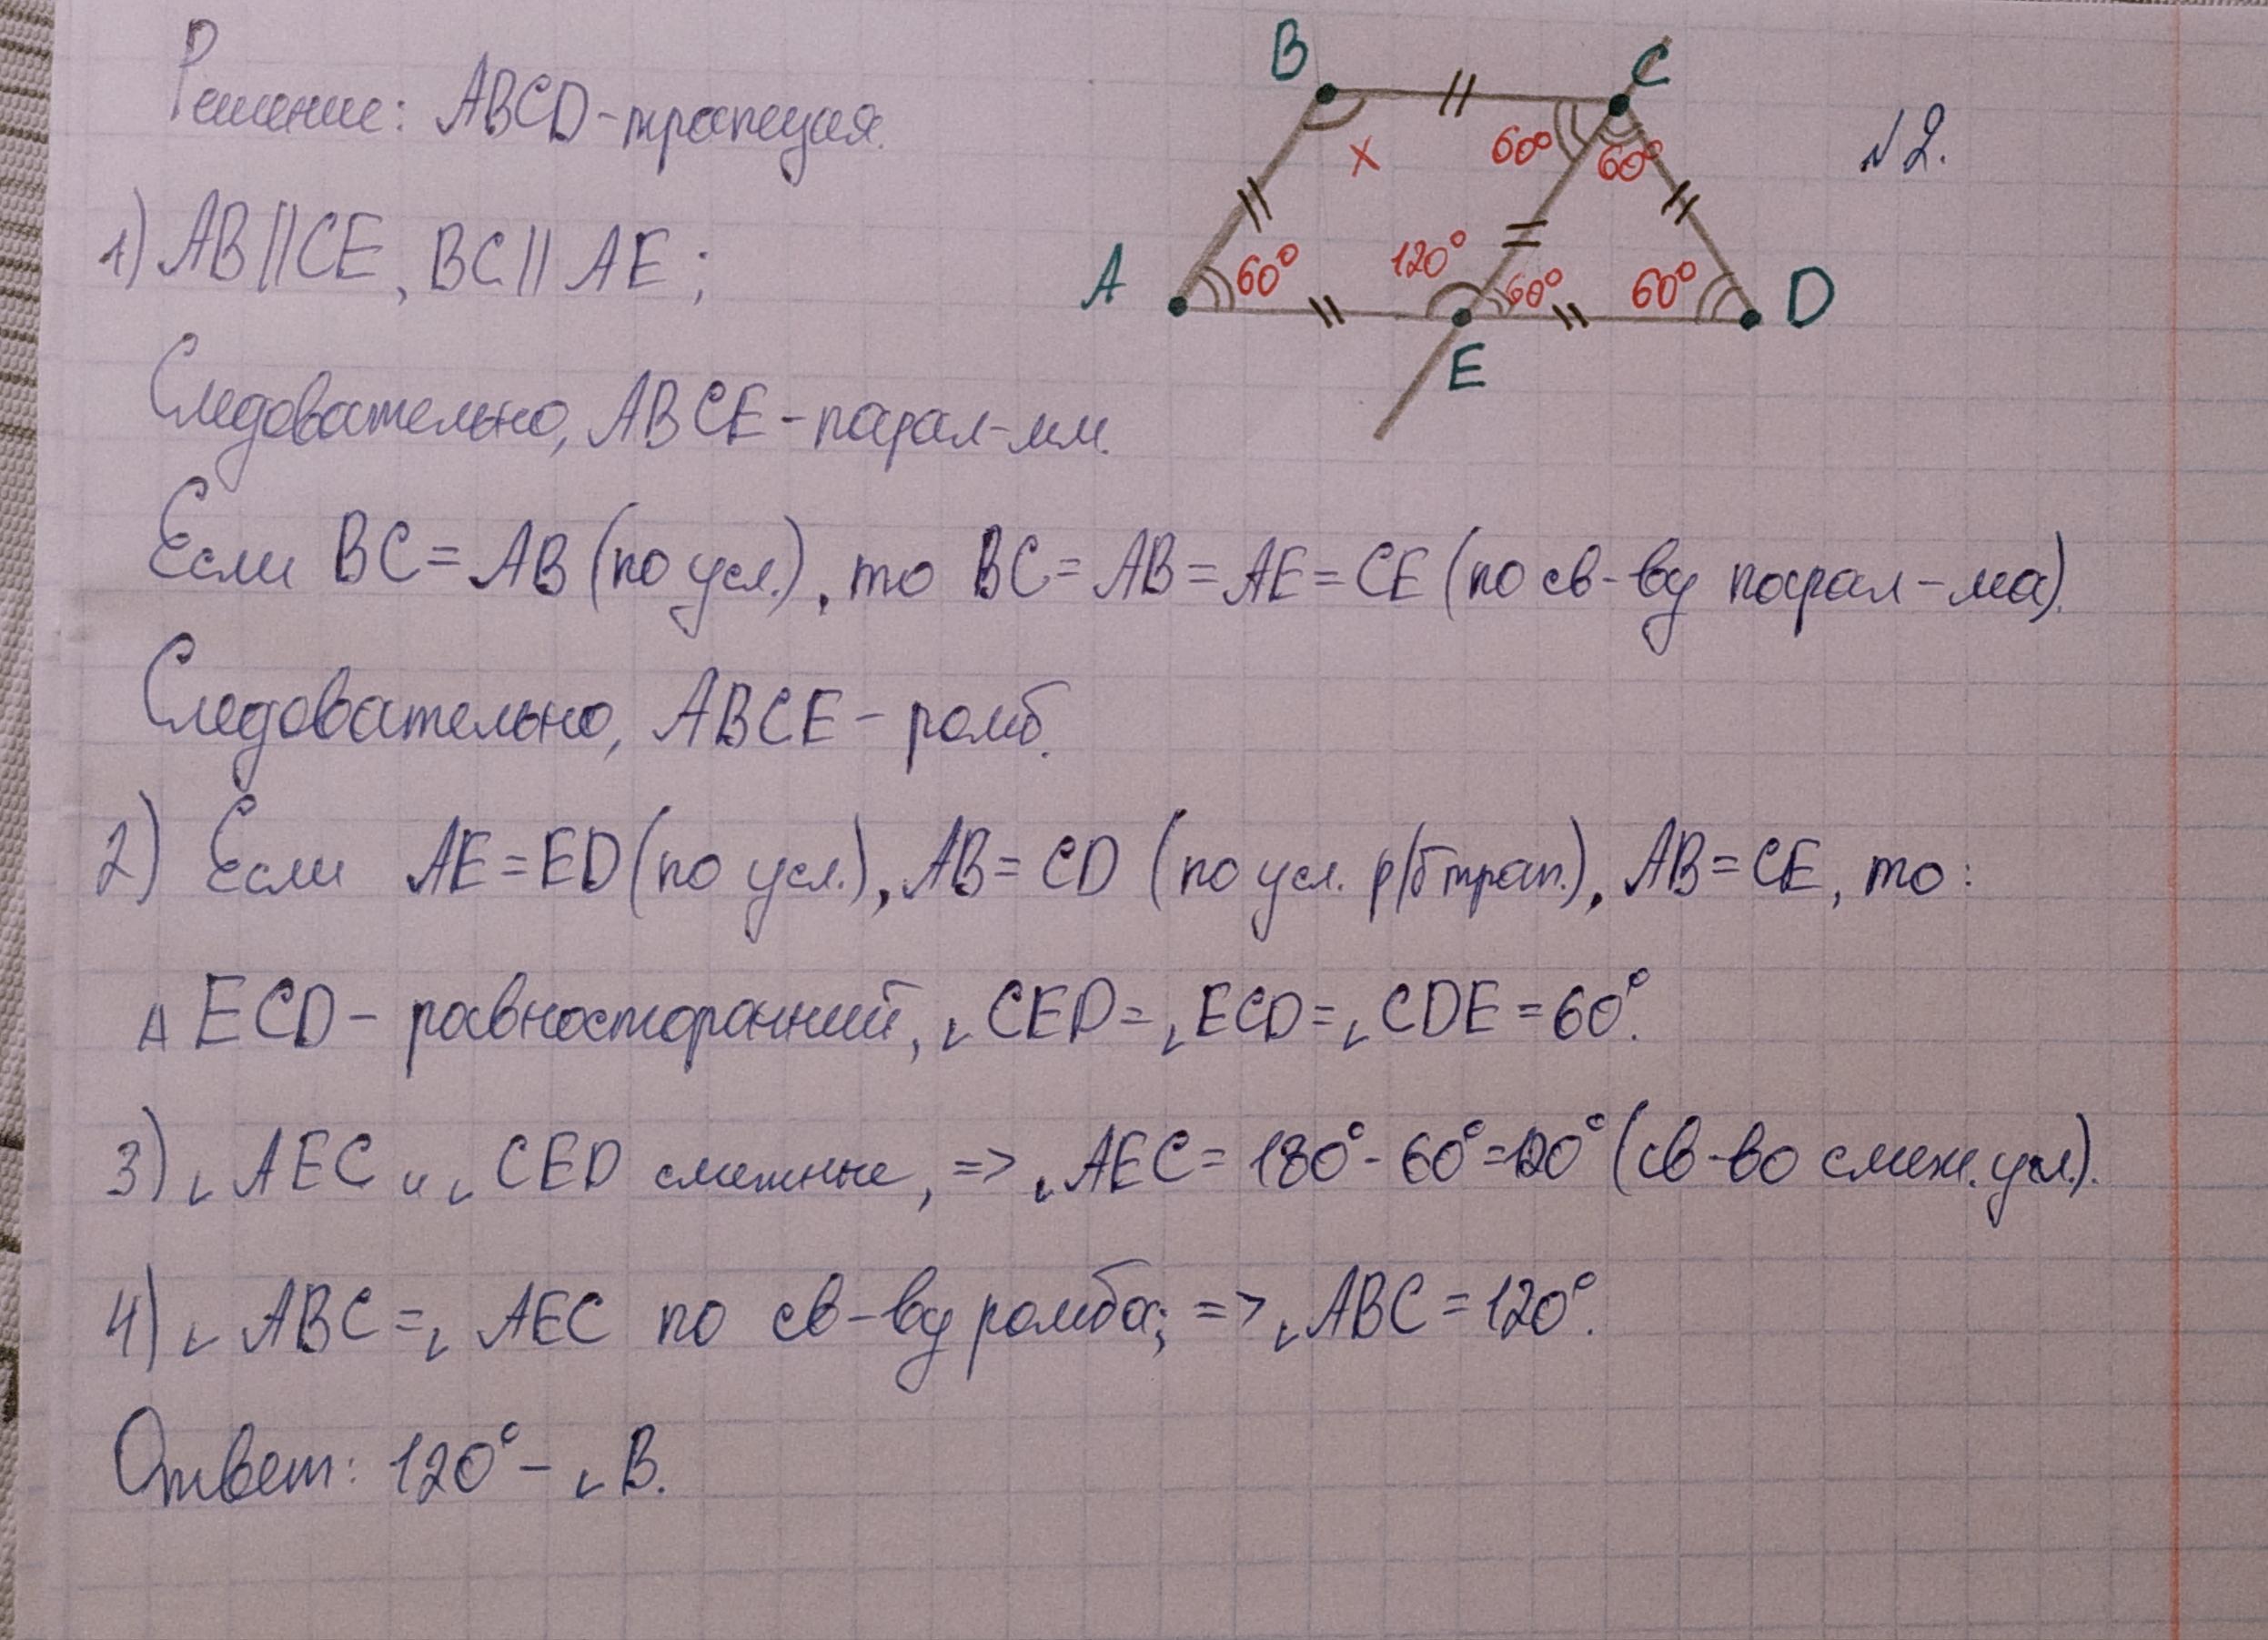 Решение: ABCD - трапеция.
B
C
x
60°
60°
№2.
A
60°
120°
60°
60°
D
E
1) AB || CE, BC || AE;
Следовательно, ABCE - парал-мм.
Если BC = AB (по усл.), то BC = AB = AE = CE (по св-ву парал-ма).
Следовательно, ABCE - ромб.
2) Если AE = ED (по усл.), AB = CD (по усл. р/б трап.), AB = CE, то:
Δ ECD - равносторонний, ∟CED = ∟ECD = ∟CDE = 60°.
3) ∟AEC и ∟CED смежные, => ∟AEC = 180° - 60° = 120° (св-во смеж. угл.).
4) ∟ABC = ∟AEC по св-ву ромба; => ∟ABC = 120°.
Ответ: 120° - ∟B.